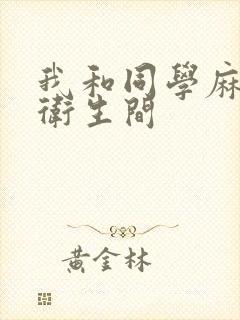 我和同學麻
衛生間
黃金林